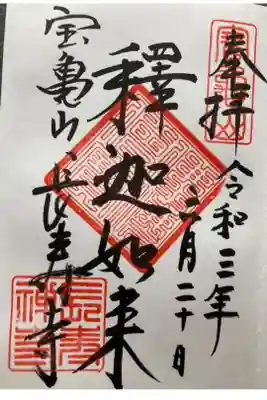 奉拝
令和三年
三月二十日
釋迦如来
宝亀山長寿寺